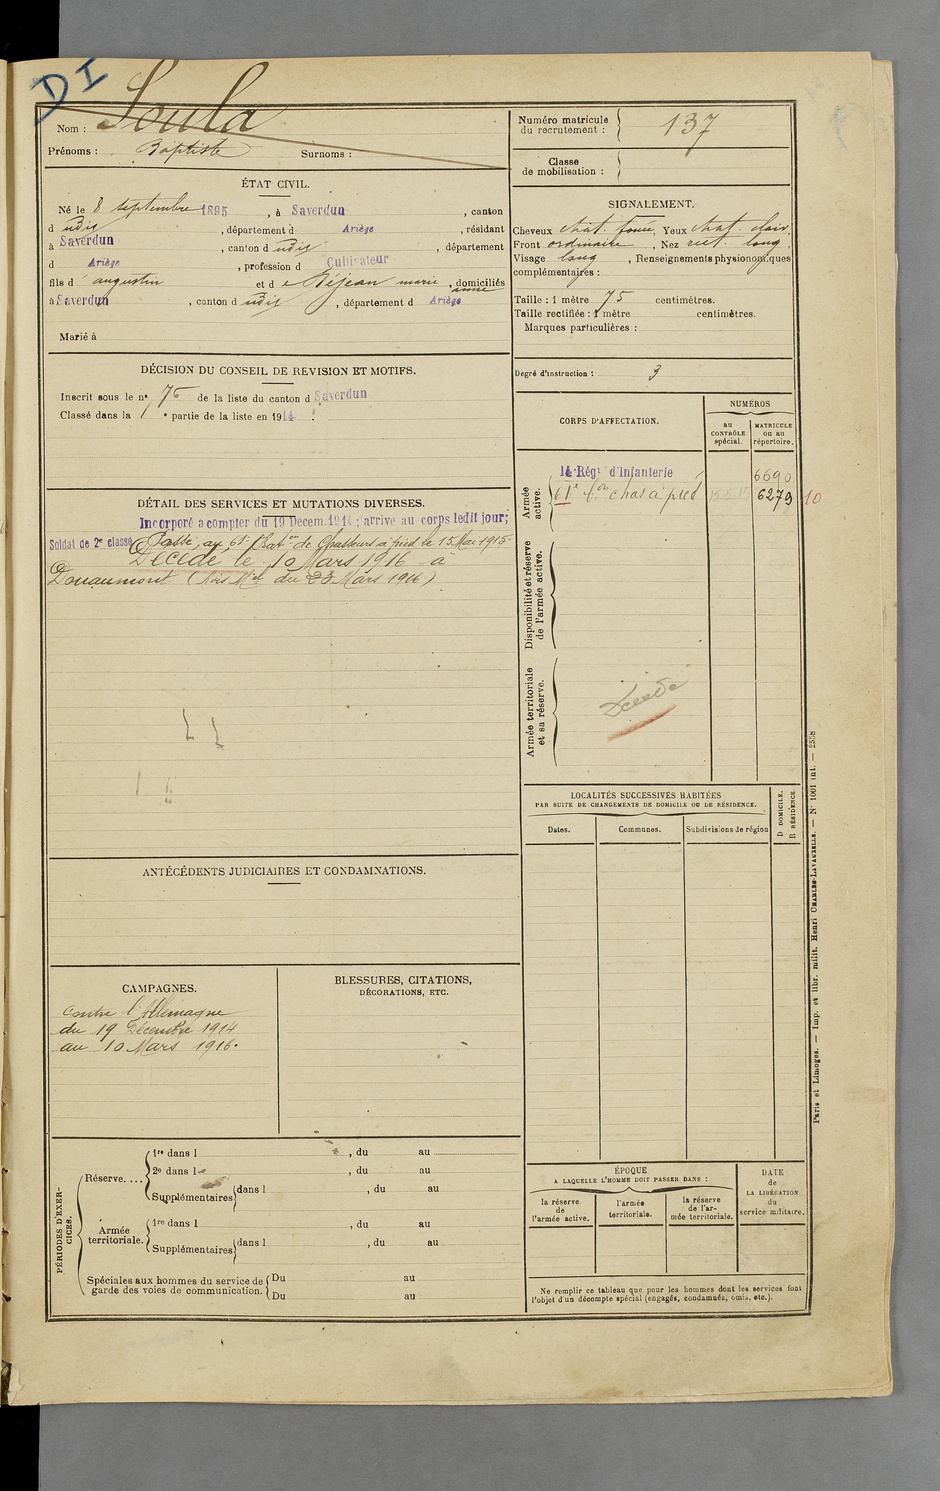 DI
Nom : Soula
Prénoms : Baptiste Surnoms :
Numéro matricule du recrutement : 137
Classe de mobilisation :
ÉTAT CIVIL.
Né le 8 septembre 1895, à Saverdun, canton
d udis, département d Ariège, résidant
à Saverdun, canton d udis, département
d Ariège, profession d Cultivateur
fils d' augustin et d e Réjean marie anne, domiciliés
à Saverdun, canton d udis, département d Ariège
Marié à
SIGNALEMENT.
Cheveux chat. foncé, Yeux chat. clair,
Front ordinaire, Nez rect. long,
Visage long, Renseignements physionomiques
complémentaires :
Taille : 1 mètre 75 centimètres.
Taille rectifiée : 1 mètre centimètres.
Marques particulières :
Degré d'instruction : 3
DÉCISION DU CONSEIL DE REVISION ET MOTIFS.
Inscrit sous le no 76 de la liste du canton d Saverdun
Classé dans la 1e partie de la liste en 1914.
CORPS D'AFFECTATION.
NUMÉROS
au CONTRÔLE spécial.
MATRICULE ou au répertoire.
Armée active.
14 Régt d'Infanterie 6690
61e Bon chas à pied 6279 10
Disponibilité et réserve de l'armée active.
Armée territoriale et sa réserve.
Décédé
DÉTAIL DES SERVICES ET MUTATIONS DIVERSES.
Incorporé a compter du 19 Decem. 1914 ; arrive au corps ledit jour;
Soldat de 2e classe Passé au 61e Baton de Chasseurs à pied le 15 Mai 1915
Décédé le 10 Mars 1916 à
Douaumont (Avis Mel du 23 Mars 1916)
LOCALITÉS SUCCESSIVES HABITÉES
PAR SUITE DE CHANGEMENTS DE DOMICILE OU DE RÉSIDENCE.
D DOMICILE.
R RÉSIDENCE.
Dates. Communes. Subdivisions de région
ANTÉCÉDENTS JUDICIAIRES ET CONDAMNATIONS.
CAMPAGNES.
contre l'Allemagne
du 19 Décembre 1914
au 10 Mars 1916.
BLESSURES, CITATIONS,
DÉCORATIONS, ETC.
PÉRIODES D'EXERCICES.
Réserve....
1re dans l , du au
2e dans l , du au
Supplémentaires dans l , du au
Armée territoriale.
1re dans l , du au
Supplémentaires dans l , du au
Spéciales aux hommes du service de garde des voies de communication.
Du au
Du au
ÉPOQUE
A LAQUELLE L'HOMME DOIT PASSER DANS :
la réserve de l'armée active.
l'armée territoriale.
la réserve de l'armée territoriale.
DATE de LA LIBÉRATION du service militaire.
Ne remplir ce tableau que pour les hommes dont les services font
l'objet d'un décompte spécial (engagés, condamnés, omis, etc.).
Paris et Limoges. — Imp. et libr. milit. Henri CHARLES-LAVAUZELLE. — No 1001 int. — 2558